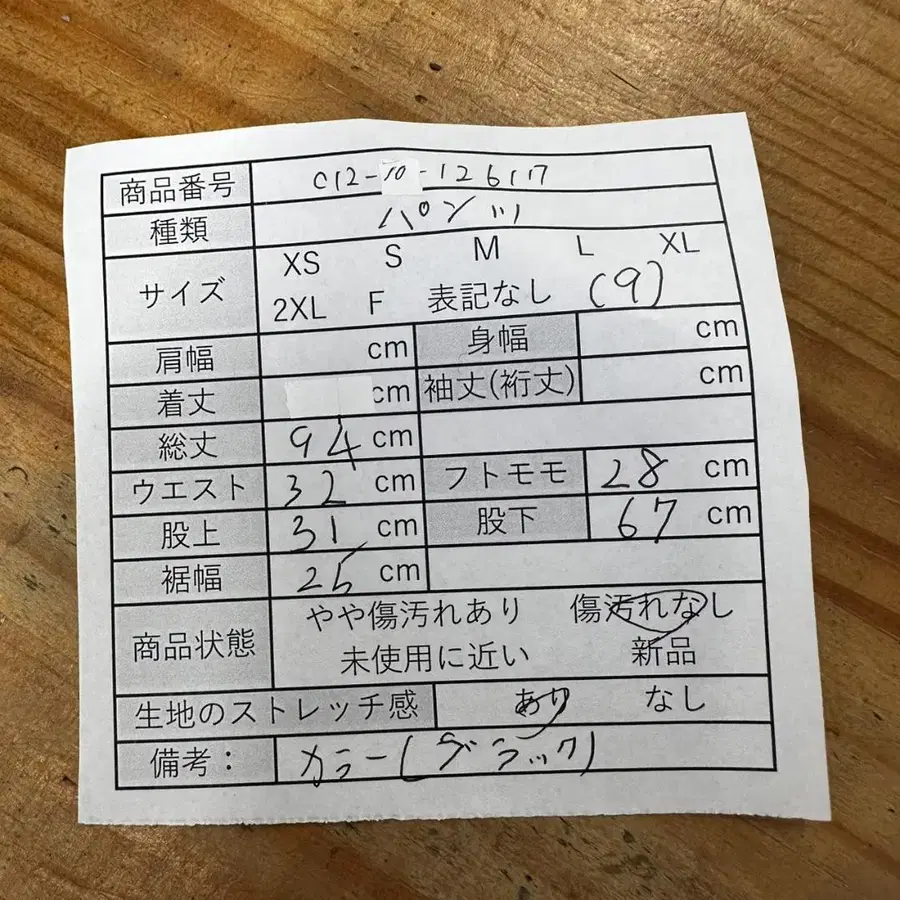 商品番号 C12-10-12617
種類 パンツ
サイズ XS S M L XL
2XL F 表記なし (9)
肩幅 cm 身幅 cm
着丈 cm 袖丈(裄丈) cm
総丈 94 cm
ウエスト 32 cm フトモモ 28 cm
股上 31 cm 股下 67 cm
裾幅 25 cm
商品状態 やや傷汚れあり 傷汚れなし
未使用に近い 新品
生地のストレッチ感 あり なし
備考: カラー(ブラック)